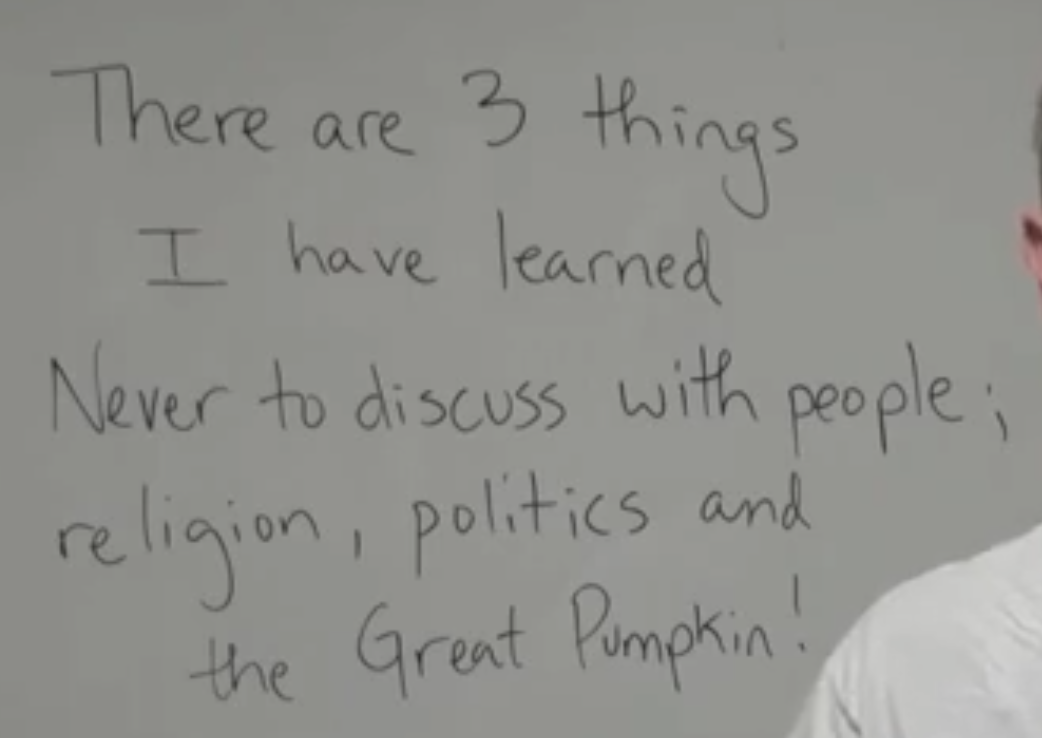 There are 3 things
I have learned
Never to discuss with people;
religion, politics and
the Great Pumpkin!